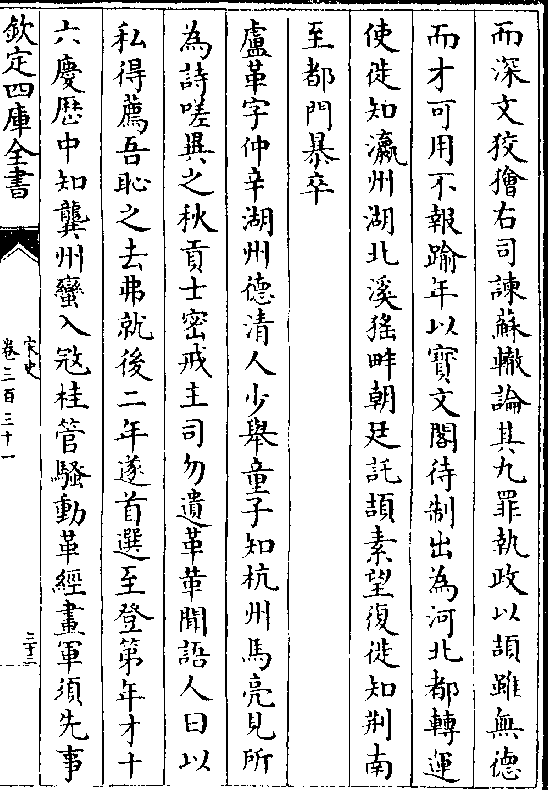 而深文狡獪右司諫蘇轍論其九罪執政以頡雖無德
而才可用不報踰年以寳文閣待制出為河北都轉運
使徙知瀛州湖北溪猺畔朝廷託頡素望復徙知荆南
至都門暴卒
盧革字仲辛湖州德清人少舉童子知杭州馬亮見所
為詩嗟異之秋貢士密戒主司勿遺革革聞語人曰以
私得薦吾恥之去弗就後二年遂首選至登第年才十
六慶歴中知龔州蠻入冦桂管騷動革經畫軍須先事
欽定四庫全書
宋史
卷三百三十一
三十三